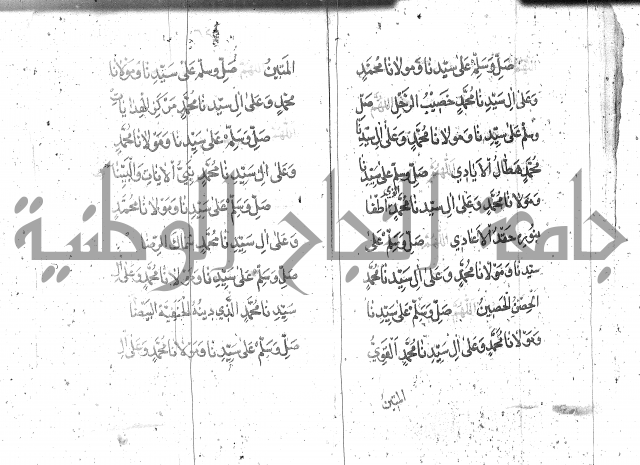 اللهم صل وسلم على سيدنا ومولانا محمد
وعلى ال سيدنا محمد خصيب الرحل اللهم صل
وسلم على سيدنا ومولانا محمد وعلى ال سيدنا
محمد هطال الايادي اللهم صل وسلم على سيدنا
ومولانا محمد وعلى ال سيدنا محمد الذي اطفا
بنوره حقد الاعادي اللهم صل وسلم على
سيدنا ومولانا محمد وعلى ال سيدنا محمد
الحصن الحصين اللهم صل وسلم على سيدنا
ومولانا محمد وعلى ال سيدنا محمد القوي
المتين
المتين اللهم صل وسلم على سيدنا ومولانا
محمد وعلى ال سيدنا محمد مركز
اللهم صل وسلم على سيدنا ومولانا محمد
وعلى ال سيدنا محمد نبي الايات والبينات
صل وسلم على سيدنا ومولانا محمد
وعلى ال سيدنا محمد
صل وسلم على سيدنا ومولانا محمد وعلى ال
سيدنا محمد الذي دينه الحنيفية البيضا
صل وسلم على سيدنا ومولانا محمد وعلى ال
جامعة النجاح الوطنية